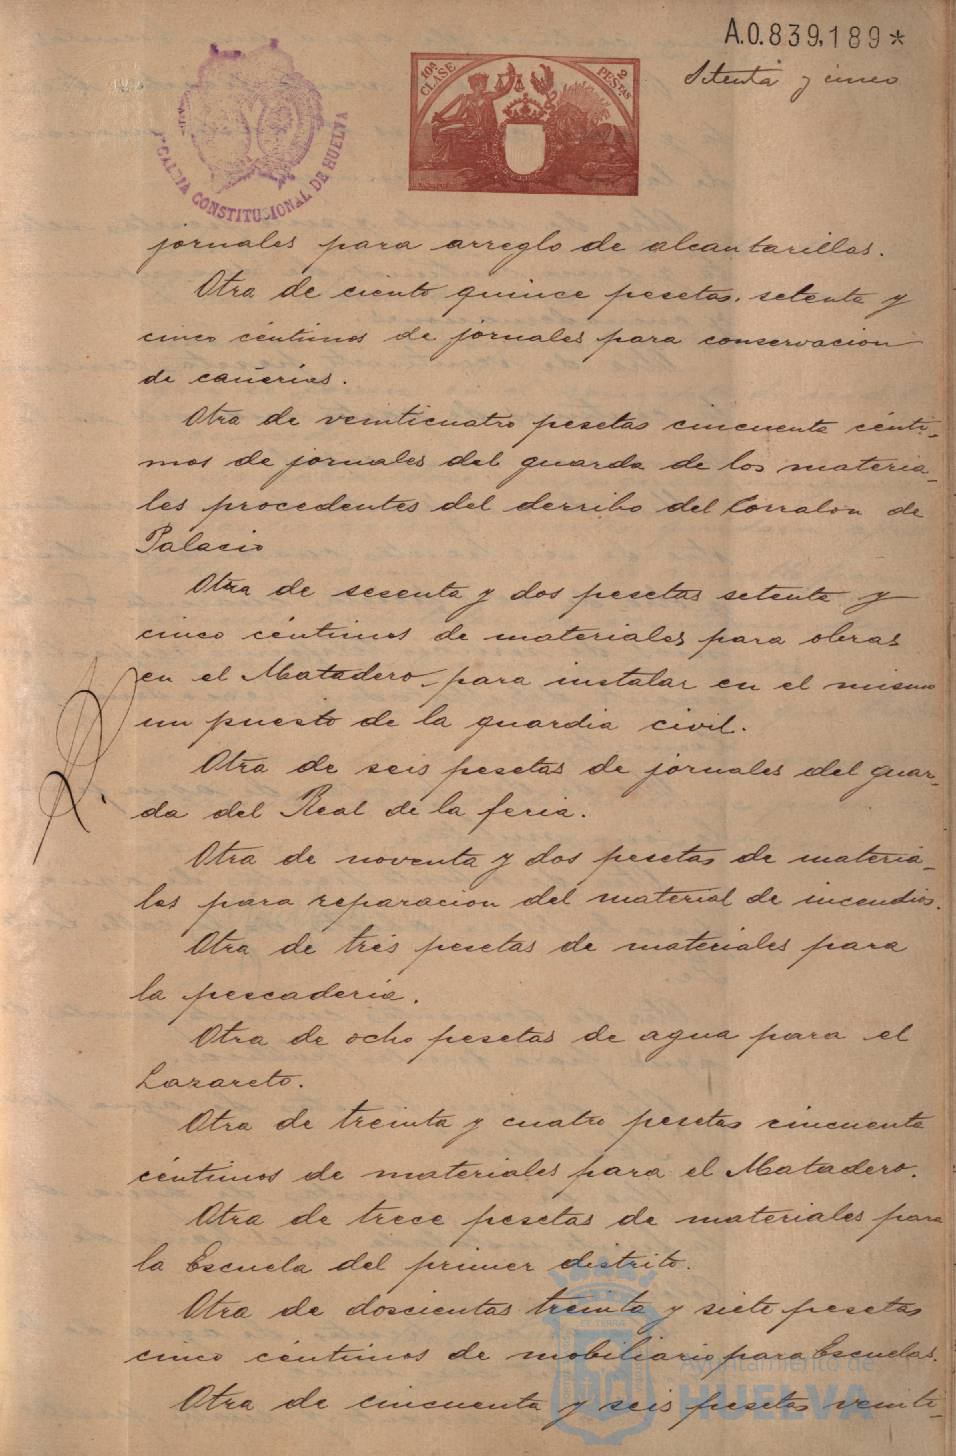 A.0.839,189*
Setenta y cinco
10ª CLASE
2 PESTAS
ALCALDIA CONSTITUCIONAL DE HUELVA
jornales para arreglo de alcantarillas.
Otra de ciento quince pesetas, setenta y
cinco céntimos de jornales para conservacion
de cañerias.
Otra de veinticuatro pesetas cincuenta cénti-
mos de jornales del guarda de los materia-
les procedentes del derribo del Corralon de
Palacio
Otra de sesenta y dos pesetas setenta y
cinco céntimos de materiales para obras
en el Matadero para instalar en el mismo
un puesto de la guardia civil.
Otra de seis pesetas de jornales del guar-
da del Real de la feria.
Otra de noventa y dos pesetas de materia-
les para reparacion del material de incendios.
Otra de tres pesetas de materiales para
la pescaderia.
Otra de ocho pesetas de agua para el
Lazareto.
Otra de treinta y cuatro pesetas cincuenta
céntimos de materiales para el Matadero.
Otra de trece pesetas de materiales para
la Escuela del primer distrito.
Otra de doscientas treinta y siete pesetas
cinco céntimos de mobiliario para Escuelas.
Otra de cincuenta y seis pesetas veinti-
Ayuntamiento de
HUELVA